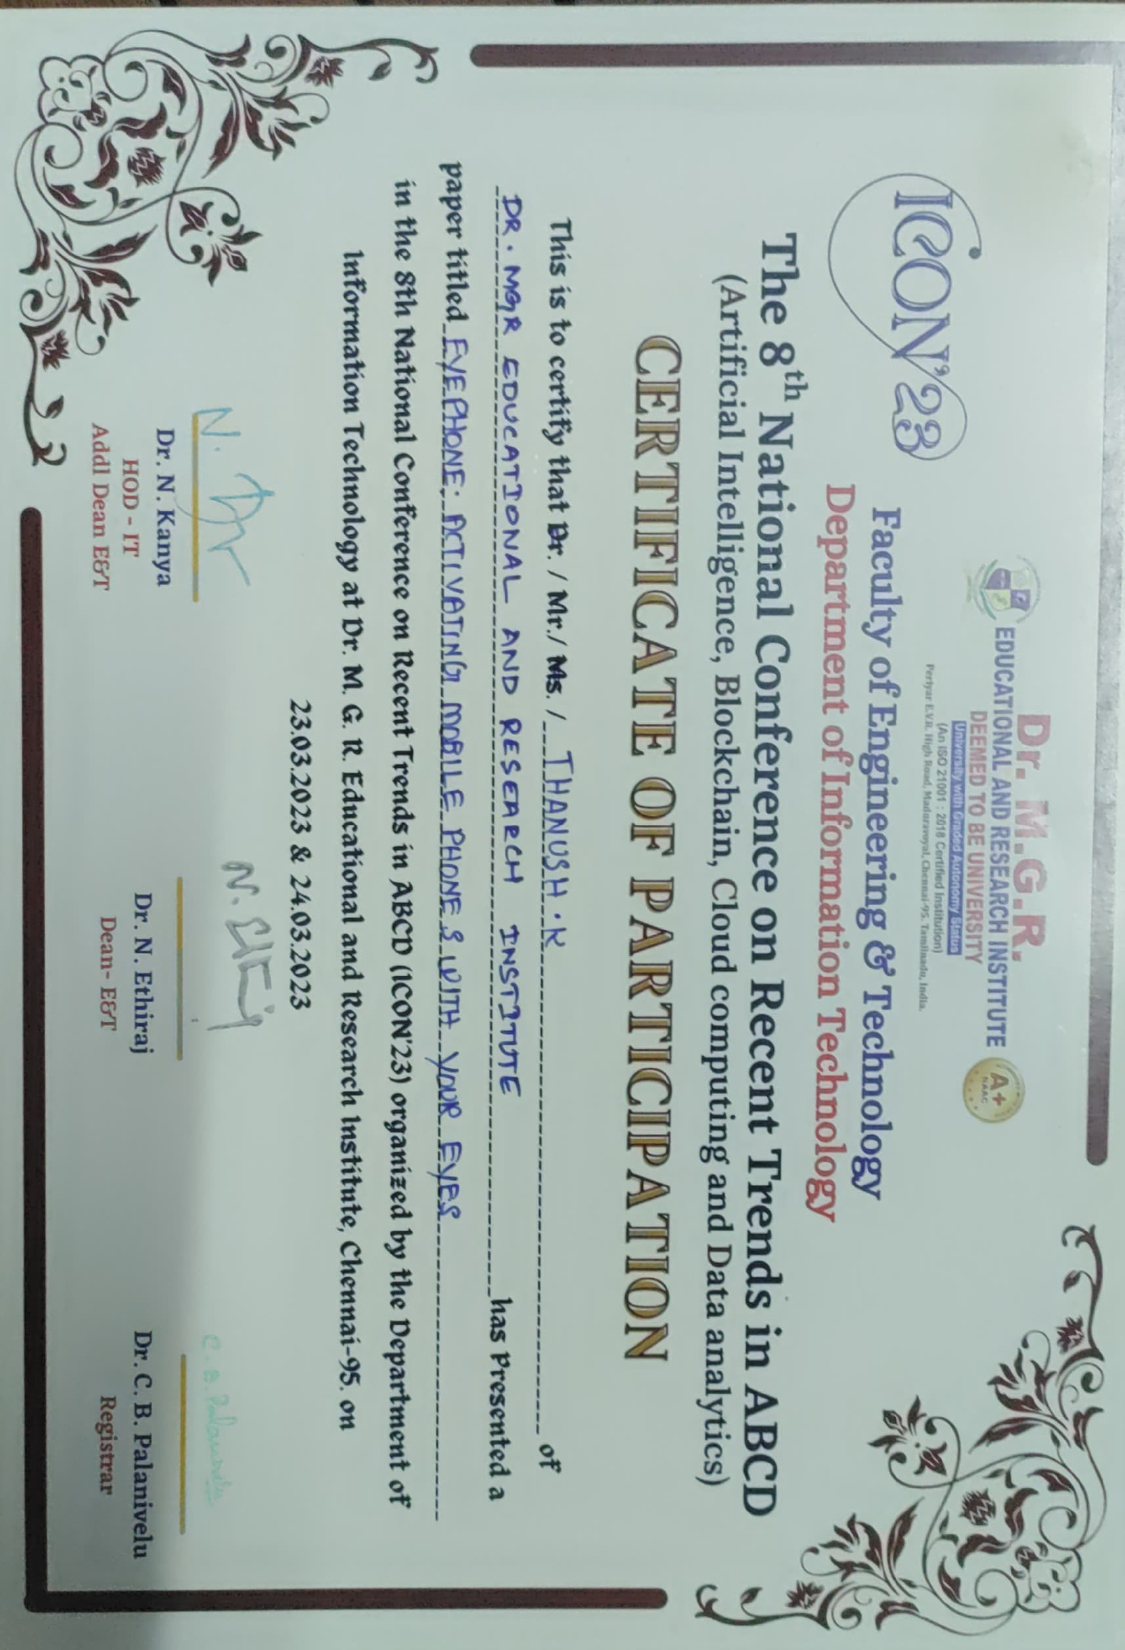 Dr. M.G.R.
EDUCATIONAL AND RESEARCH INSTITUTE
DEEMED TO BE UNIVERSITY
University with Graded Autonomy Status
(An ISO 21001 : 2018 Certified Institution)
Periyar E.V.R. High Road, Maduravoyal, Chennai-95. Tamilnadu, India.
A+
NAAC
ICON'23
Faculty of Engineering & Technology
Department of Information Technology
The 8th National Conference on Recent Trends in ABCD
(Artificial Intelligence, Blockchain, Cloud computing and Data analytics)
CERTIFICATE OF PARTICIPATION
This is to certify that Dr. / Mr./ Ms. / THANUSH . K of
DR. MGR EDUCATIONAL AND RESEARCH INSTITUTE has Presented a
paper titled EYEPHONE: ACTIVATING MOBILE PHONES WITH YOUR EYES
in the 8th National Conference on Recent Trends in ABCD (ICON'23) organized by the Department of
Information Technology at Dr. M. G. R. Educational and Research Institute, Chennai-95. on
23.03.2023 & 24.03.2023
C. B. Palanivelu
Dr. N. Kanya
HOD - IT
Addl Dean E&T
Dr. N. Ethiraj
Dean- E&T
Dr. C. B. Palanivelu
Registrar